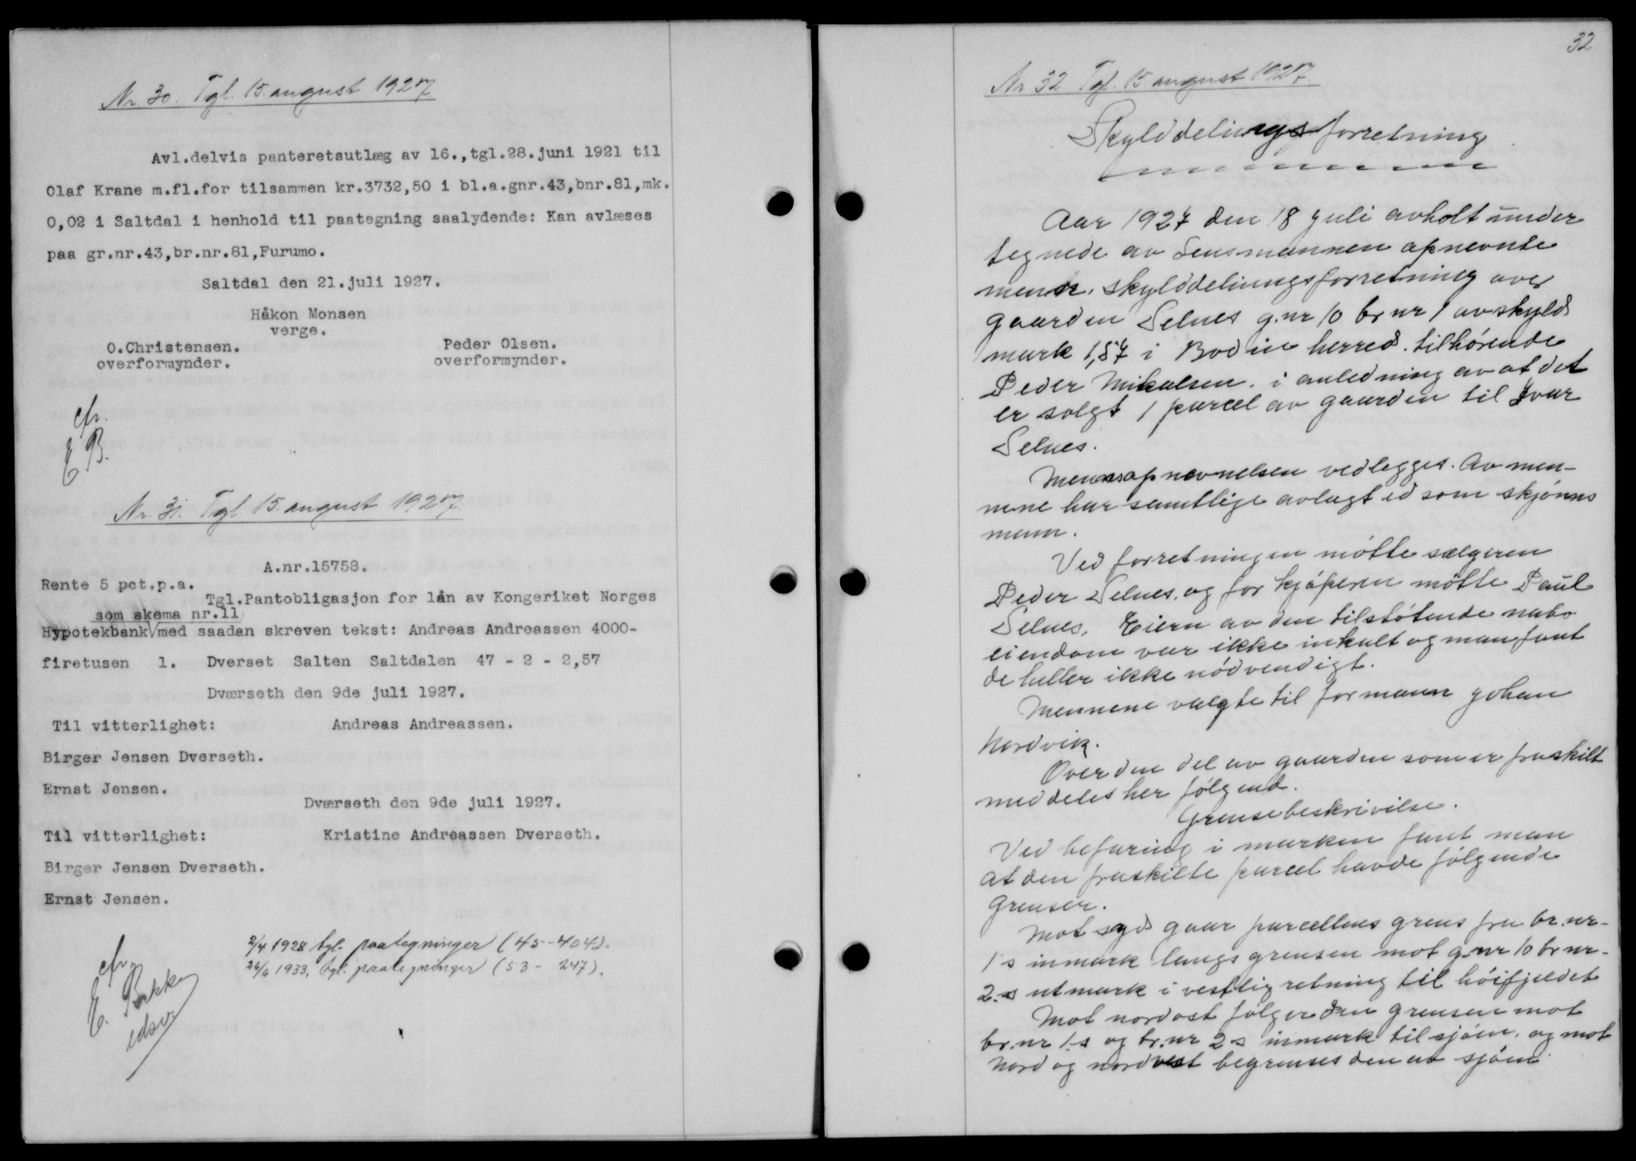 Nr. 30. Tgl. 15. august 1927
Avl.delvis panteretsutlæg av 16.,tgl.28.juni 1921 til
Olaf Krane m.fl.for tilsammen kr.3732,50 i bl.a.gnr.43,bnr.81,mk.
0,02 i Saltdal i henhold til paategning saalydende: Kan avlæses
paa gr.nr.43,br.nr.81,Furumo.
Saltdal den 21.juli 1927.
Håkon Monsen
verge.
O.Christensen.
overformynder.
Peder Olsen.
overformynder.
cfr.
E B.
Nr. 31. Tgl. 15. august 1927
A.nr.15758.
Rente 5 pct.p.a.
Tgl.Pantobligasjon for lån av Kongeriket Norges
som skema nr.11
Hypotekbank med saadan skreven tekst: Andreas Andreassen 4000-
firetusen 1. Dverset Salten Saltdalen 47 - 2 - 2,57
Dværseth den 9de juli 1927.
Til vitterlighet:
Andreas Andreassen.
Birger Jensen Dverseth.
Ernst Jensen.
Dværseth den 9de juli 1927.
Til vitterlighet:
Kristine Andreassen Dverseth.
Birger Jensen Dverseth.
Ernst Jensen.
2/4 1928 tgl. paategninger (45-404).
26/6 1933, tgl. paategninger (53 - 247).
cfr.
E.
32
Nr 32 Tgl. 15. august 1927
Skylddelingsforretning
Aar 1927 den 18 juli avholt under
tegnede av Lensmannen opnevnte
menn. skylddelingsforretning over
gaarden Selnes g.nr 10 br nr 1 av skyld
mark 1,57 i Bodin herred. tilhørende
Peder Mikalsen. i anledning av at det
er solgt 1 parcel av gaarden til Ivar
Selnes.
Mennsopnevnelsen vedlegges. Av men-
nene har samtlige avlagt ed som skjønns
menn.
Ved forretningen møtte sælgeren
Peder Selnes. og for kjøperen møtte Paul
Selnes. Eiern av den tilstøtende nabo
eiendom var ikke inkalt og man fant
de heller ikke nødvendigt.
Mennene valgte til formann Johan
Nordvik.
Over den del av gaarden som er fraskilt
meddeles her følgend.
Grensebeskrivelse.
Ved befaring i marken fant man
at den fraskilte parcel havde følgende
grenser.
Mot syd gaar parcellens grens fra br.nr-
1 s inmark langs grensen mot g.nr 10 br nr-
2-s utmark i vestlig retning til høifjeldet
Mot nordost følger den grensen mot
br.nr 1-s og br.nr 2-s inmark til sjøen. og mot
Nord og nordvest begrenses den av sjøen